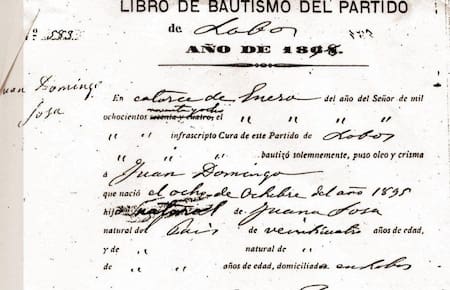 LIBRO DE BAUTISMO DEL PARTIDO
de Lobos
AÑO DE 1898.
Nº 583
Juan Domingo
Sosa
En catorce de Enero del año del Señor de mil
noventa y ocho
ochocientos setenta y cuatro, el " " " "
" " infrascripto Cura de este Partido de Lobos
" " " bautizó solemnemente, puso oleo y crisma
á Juan Domingo
que nació el ocho de Octubre del año 1895
hijo natural de Juana Sosa
natural del Pais de veinticuatro años de edad,
y de " natural de "
de " " años de edad, domiciliados en Lobos